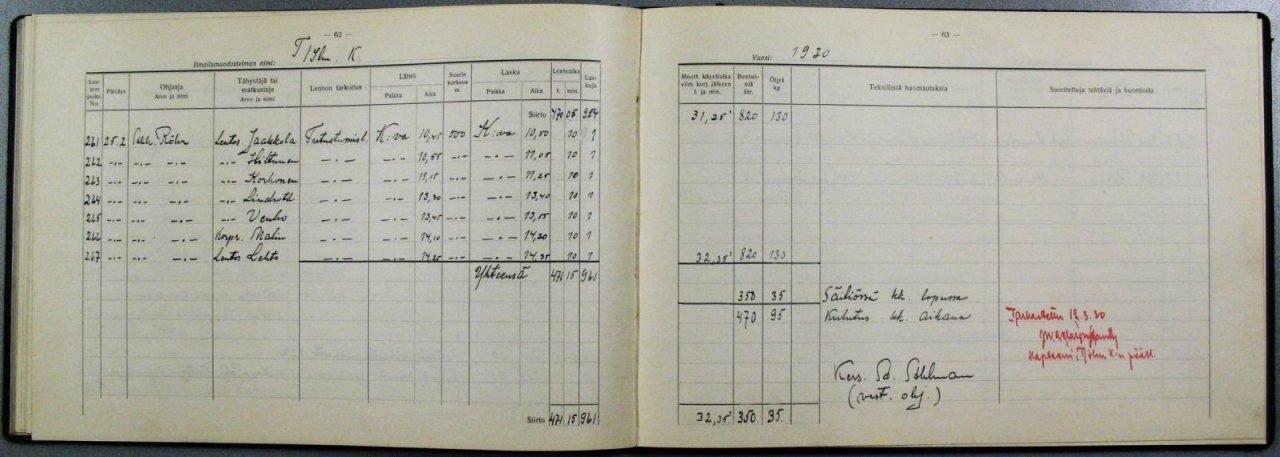 — 62 —
T/Ilm. K.
Ilmailumuodostelman nimi:
Lennon jouks. N:o Päiväys Ohjaaja Arvo ja nimi Tähystäjä tai matkustaja Arvo ja nimi Lennon tarkoitus Lähtö Paikka Aika Suurin korkeus m. Lasku Paikka Aika Lentoaika t. min. Laskuja
Siirto 470 05 954
261 25.2 Röhr Lentos. Jaakkola Tutustumisl. K:va 10,45 500 K:va 10,50 10 1
262 -"- -"- -"- -"- Hiltunen -"- -"- 10,55 -"- -"- 11,05 10 1
263 -"- -"- -"- -"- Korhonen -"- -"- 11,15 -"- -"- 11,25 10 1
264 -"- -"- -"- -"- Lindroth -"- -"- 13,30 -"- -"- 13,40 10 1
265 -"- -"- -"- -"- Venho -"- -"- 13,45 -"- -"- 13,55 10 1
266 -"- -"- -"- Korpr. Malin -"- -"- 14,10 -"- -"- 14,20 10 1
267 -"- -"- -"- Lentos Lehto -"- -"- 14,25 -"- -"- 14,35 10 1
Yhteensä 471 15 961
Siirto 471 15 961
— 63 —
Vuosi: 1930
Moott. käyntiaika viim. korj. jälkeen t. ja min. Bentsiiniä litr. Öljyä kg. Teknillisiä huomautuksia Suoritettuja tehtäviä ja huomioita
31,25' 820 130
32,35' 820 130
350 35 Säiliössä kk. lopussa
470 95 Kulutus kk. aikana
Tarkastettu 12.3.30
Kapteeni, T/Ilm K:n pääll.
Kers.
(vast. ohj.)
32,35' 350 35.